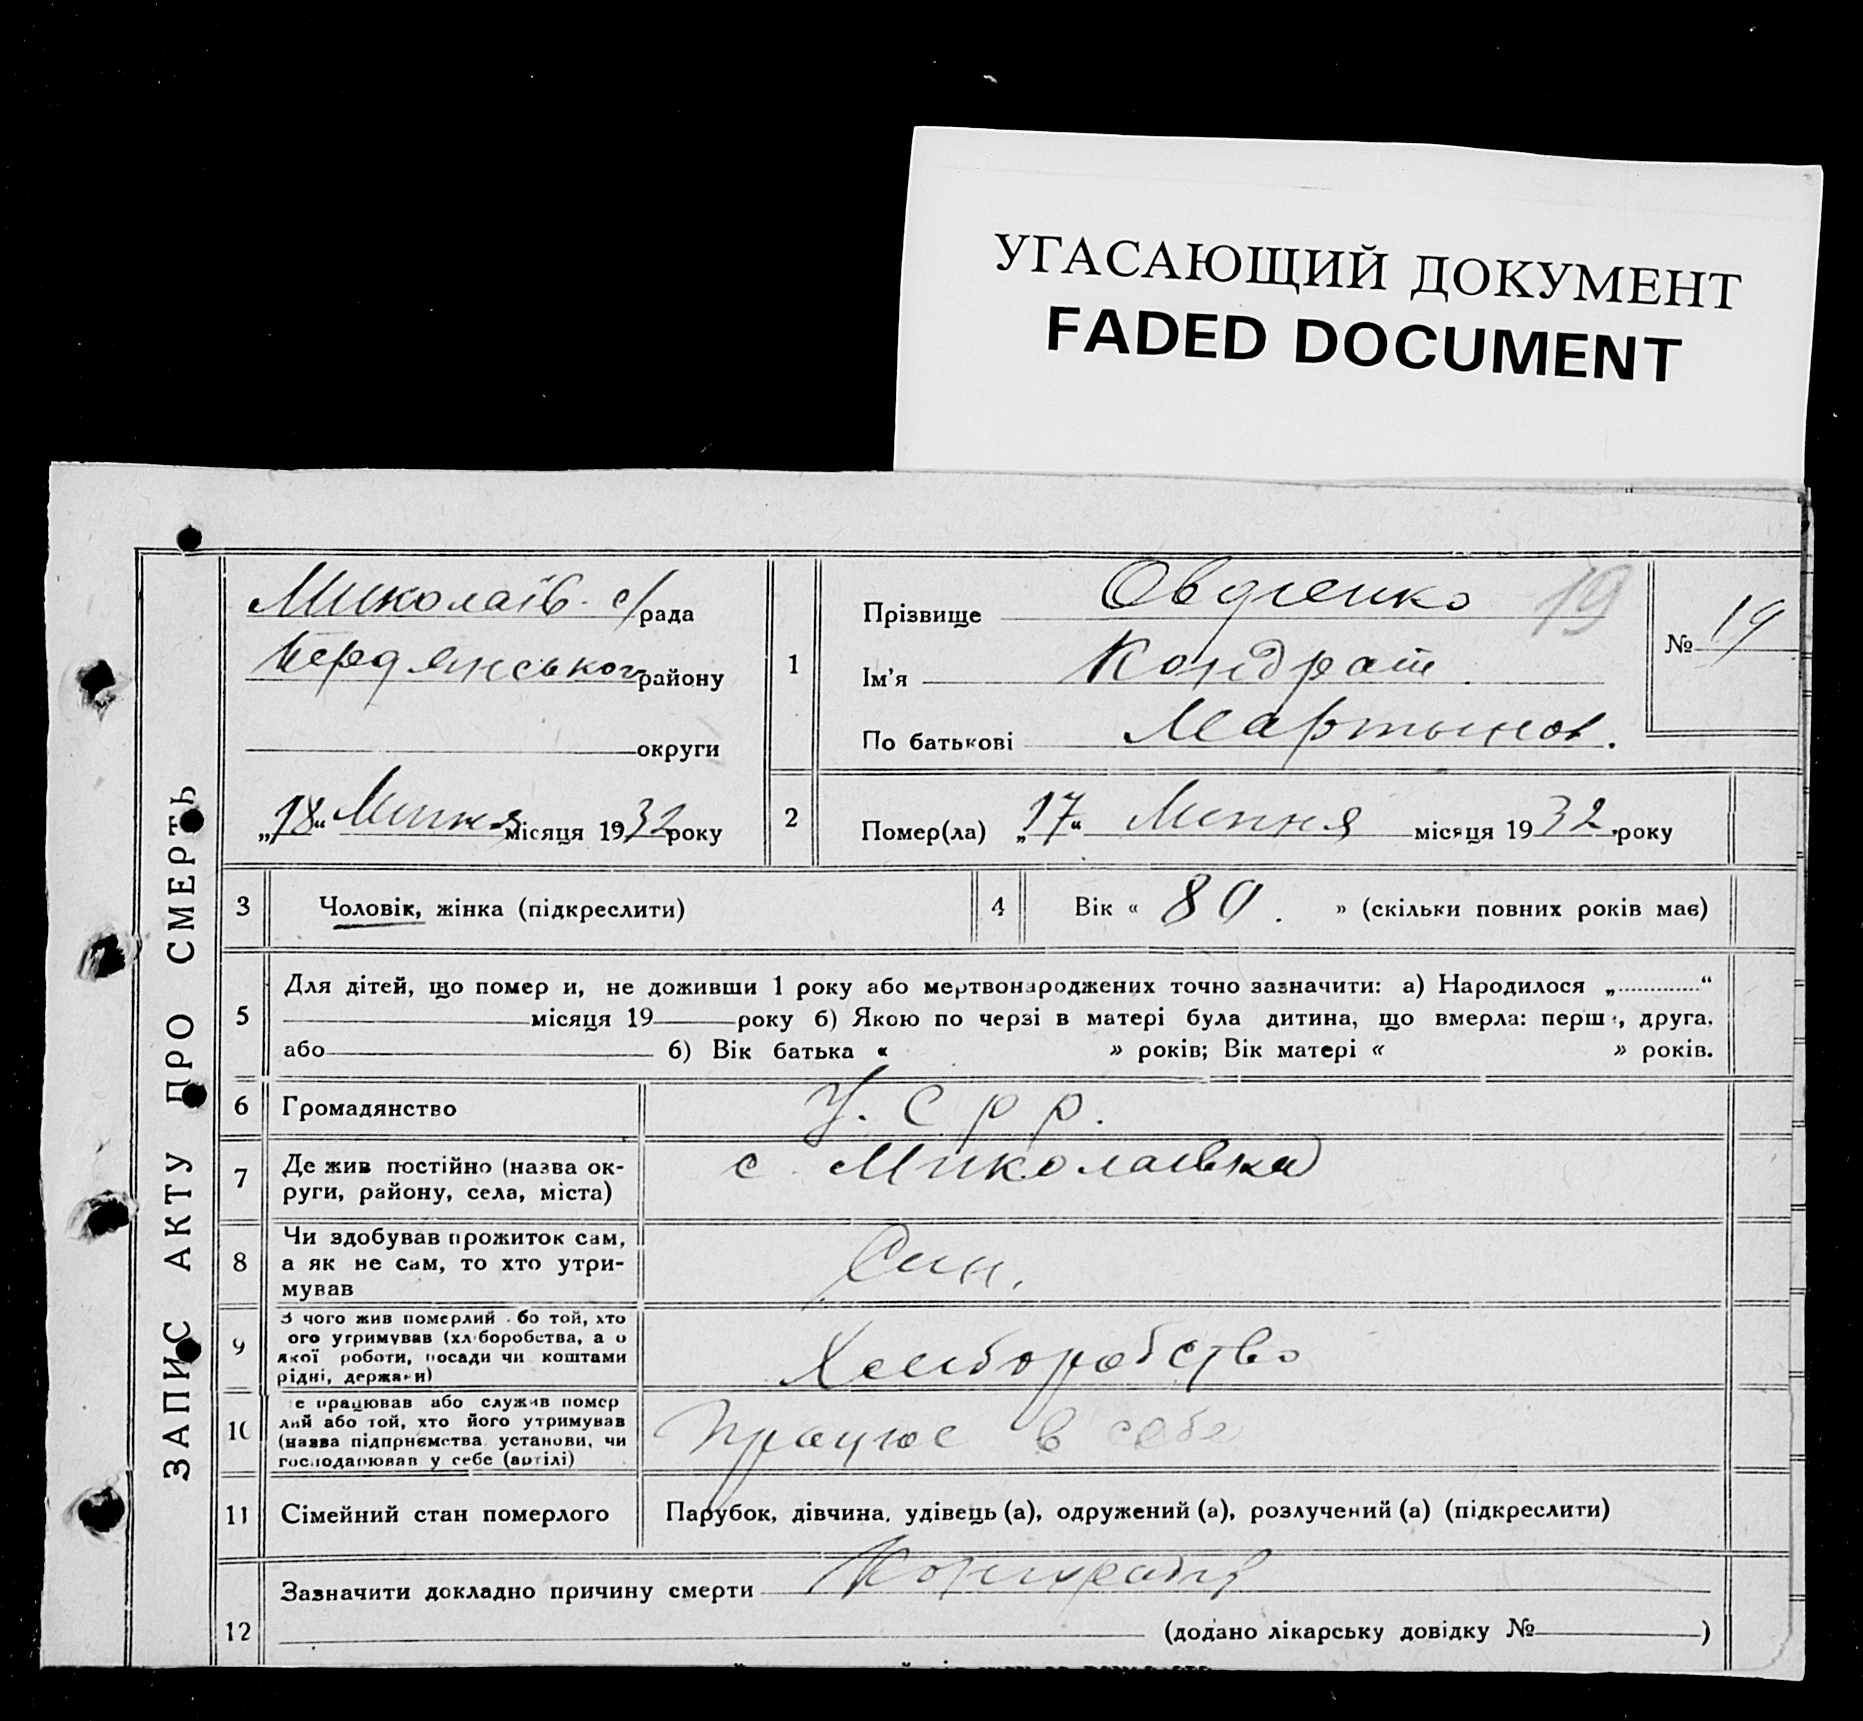 УГАСАЮЩИЙ ДОКУМЕНТ
FADED DOCUMENT
ЗАПИС АКТУ ПРО СМЕРТЬ
Миколаїв. с/рада
Бердянського району
округи
„18“ місяця 1932 року
1
Прізвище Овдіенко 19
Ім'я Кондрат
По батькові Мартынов.
№ 19
2
Помер(ла) „17“ місяця 1932 року
3
Чоловік, жінка (підкреслити)
4
Вік « 80. » (скільки повних років має)
5
Для дітей, що помер и, не доживши 1 року або мертвонароджених точно зазначити: а) Народилося „............“
місяця 19 року б) Якою по черзі в матері була дитина, що вмерла: перш , друга,
або б) Вік батька « » років; Вік матері « » років.
6
Громадянство
У. С р р.
7
Де жив постійно (назва ок-
руги, району, села, міста)
с. Миколаївка
8
Чи здобував прожиток сам,
а як не сам, то хто утри-
мував
Син.
9
З чого жив померлий бо той, хто
ого утримував (хл боробства, а о
якої роботи, посади чи коштами
рідні, держави)
Хлиборобство
10
е працював або служив помер
лий або той, хто його утримував
(назва підприємства установи, чи
господарював у себе (артілі)
Працює в себе
11
Сімейний стан померлого
Парубок, дівчина, удівець (а), одружений (а), розлучений (а) (підкреслити)
12
Зазначити докладно причину смерти
(додано лікарську довідку № )